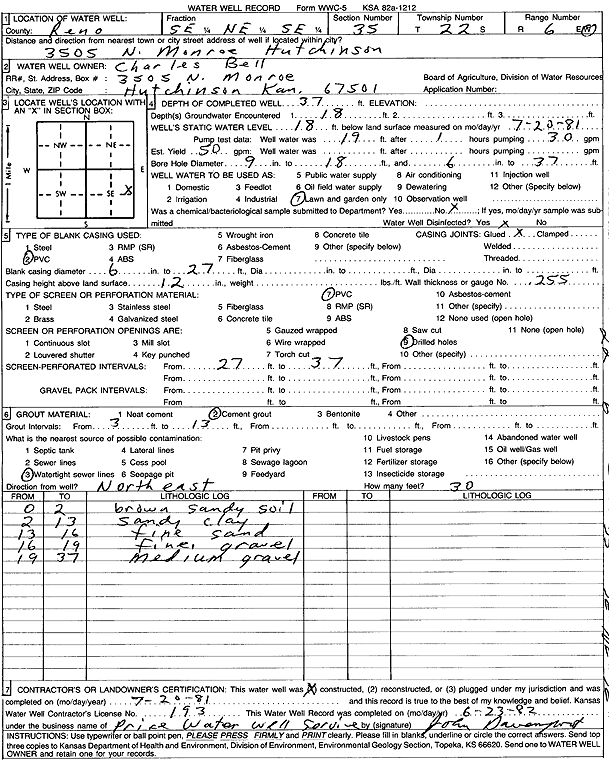 WATER WELL RECORD Form WWC-5 KSA 82a-1212
1 LOCATION OF WATER WELL: Fraction Section Number Township Number Range Number
County: Reno SE ¼ NE ¼ SE ¼ 35 T 22 S R 6 E/W
Distance and direction from nearest town or city street address of well if located within city?
3505 N. Monroe Hutchinson
2 WATER WELL OWNER: Charles Bell
RR#, St. Address, Box # : 3505 N. Monroe Board of Agriculture, Division of Water Resources
City, State, ZIP Code : Hutchinson Kan. 67501 Application Number:
3 LOCATE WELL'S LOCATION WITH AN "X" IN SECTION BOX:
N
NW NE
W E
SW SE X
S
1 Mile
4 DEPTH OF COMPLETED WELL 37 ft. ELEVATION:
Depth(s) Groundwater Encountered 1. 18 ft. 2. ft. 3. ft.
WELL'S STATIC WATER LEVEL 18 ft. below land surface measured on mo/day/yr 7-20-81
Pump test data: Well water was 19 ft. after 1 hours pumping 30 gpm
Est. Yield 50 gpm: Well water was ft. after hours pumping gpm
Bore Hole Diameter 9 in. to 18 ft., and 6 in. to 37 ft.
WELL WATER TO BE USED AS: 5 Public water supply 8 Air conditioning 11 Injection well
1 Domestic 3 Feedlot 6 Oil field water supply 9 Dewatering 12 Other (Specify below)
2 Irrigation 4 Industrial 7 Lawn and garden only 10 Observation well
Was a chemical/bacteriological sample submitted to Department? Yes No X; If yes, mo/day/yr sample was submitted
Water Well Disinfected? Yes X No
5 TYPE OF BLANK CASING USED: 5 Wrought iron 8 Concrete tile CASING JOINTS: Glued X Clamped
1 Steel 3 RMP (SR) 6 Asbestos-Cement 9 Other (specify below) Welded
2 PVC 4 ABS 7 Fiberglass Threaded
Blank casing diameter 6 in. to 27 ft., Dia in. to ft., Dia in. to ft.
Casing height above land surface 12 in., weight lbs./ft. Wall thickness or gauge No. .255
TYPE OF SCREEN OR PERFORATION MATERIAL: 7 PVC 10 Asbestos-cement
1 Steel 3 Stainless steel 5 Fiberglass 8 RMP (SR) 11 Other (specify)
2 Brass 4 Galvanized steel 6 Concrete tile 9 ABS 12 None used (open hole)
SCREEN OR PERFORATION OPENINGS ARE: 5 Gauzed wrapped 8 Saw cut 11 None (open hole)
1 Continuous slot 3 Mill slot 6 Wire wrapped 9 Drilled holes
2 Louvered shutter 4 Key punched 7 Torch cut 10 Other (specify)
SCREEN-PERFORATED INTERVALS: From 27 ft. to 37 ft., From ft. to ft.
From ft. to ft., From ft. to ft.
GRAVEL PACK INTERVALS: From ft. to ft., From ft. to ft.
From ft. to ft., From ft. to ft.
6 GROUT MATERIAL: 1 Neat cement 2 Cement grout 3 Bentonite 4 Other
Grout Intervals: From 3 ft. to 13 ft., From ft. to ft., From ft. to ft.
What is the nearest source of possible contamination: 10 Livestock pens 14 Abandoned water well
1 Septic tank 4 Lateral lines 7 Pit privy 11 Fuel storage 15 Oil well/Gas well
2 Sewer lines 5 Cess pool 8 Sewage lagoon 12 Fertilizer storage 16 Other (specify below)
3 Watertight sewer lines 6 Seepage pit 9 Feedyard 13 Insecticide storage
Direction from well? Northeast How many feet? 30
FROM TO LITHOLOGIC LOG FROM TO LITHOLOGIC LOG
0 2 brown sandy soil
2 13 sandy clay
13 16 fine sand
16 19 fine gravel
19 37 medium gravel
7 CONTRACTOR'S OR LANDOWNER'S CERTIFICATION: This water well was (1) constructed, (2) reconstructed, or (3) plugged under my jurisdiction and was
completed on (mo/day/year) 7-20-81 and this record is true to the best of my knowledge and belief. Kansas
Water Well Contractor's License No. 193 This Water Well Record was completed on (mo/day/yr) 6-23-82
under the business name of Price Water Well Service by (signature) John Davenport
INSTRUCTIONS: Use typewriter or ball point pen, PLEASE PRESS FIRMLY and PRINT clearly. Please fill in blanks, underline or circle the correct answers. Send top
three copies to Kansas Department of Health and Environment, Division of Environment, Environmental Geology Section, Topeka, KS 66620. Send one to WATER WELL
OWNER and retain one for your records.